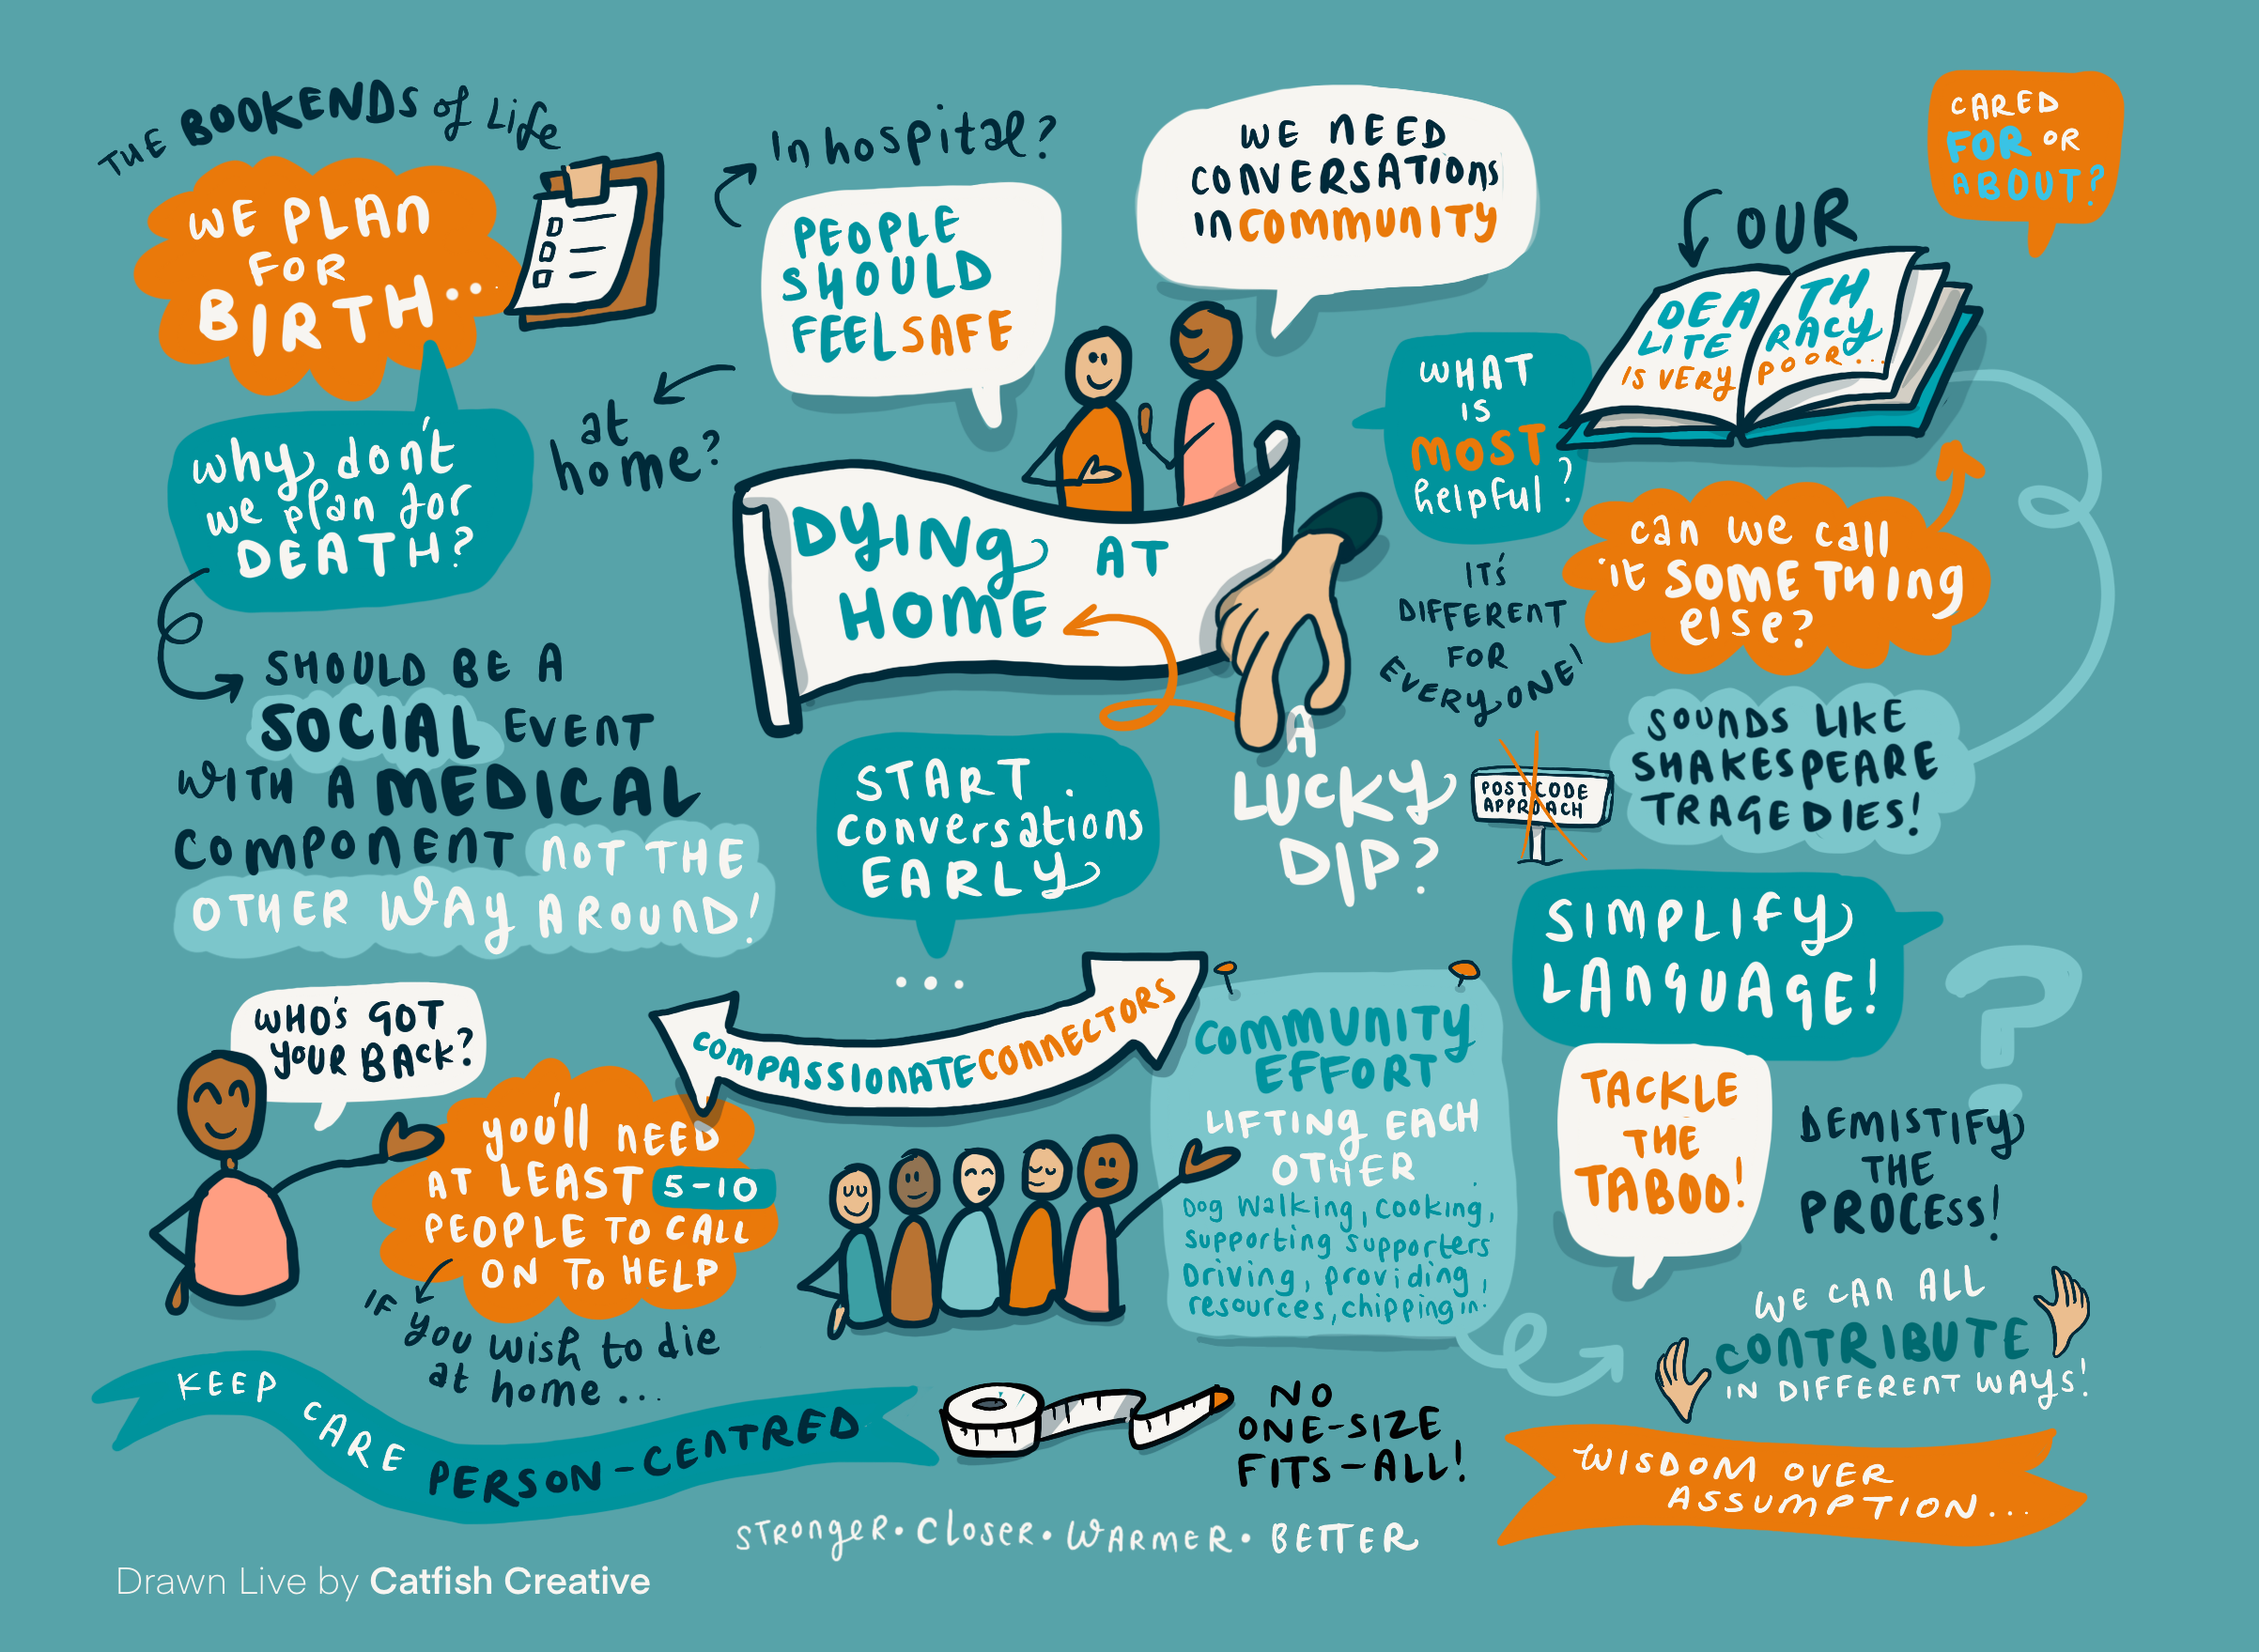 THE BOOKENDS of Life
WE PLAN
FOR
BIRTH...
why don't
we plan for
DEATH?
SHOULD BE A
SOCIAL EVENT
WITH A MEDICAL
COMPONENT NOT THE
OTHER WAY AROUND!
In hospital?
PEOPLE
SHOULD
FEEL SAFE
at
home?
WE NEED
CONVERSATIONS
IN COMMUNITY
DYING AT
HOME
A
LUCKY
DIP?
POSTCODE
APPROACH
START
Conversations
EARLY
...
WHAT
IS
MOST
helpful?
IT'S
DIFFERENT
FOR
EVERYONE!
CARED
FOR OR
ABOUT?
OUR
DEATH
LITERACY
IS VERY POOR...
can we call
it SOMETHING
else?
SOUNDS LIKE
SHAKESPEARE
TRAGEDIES!
SIMPLIFY
LANGUAGE!
?
TACKLE
THE
TABOO!
DEMISTIFY
THE
PROCESS!
WHO'S GOT
YOUR BACK?
you'll NEED
AT LEAST 5-10
PEOPLE TO CALL
ON TO HELP
IF
you wish to die
at home...
COMPASSIONATE CONNECTORS
COMMUNITY
EFFORT
LIFTING EACH
OTHER
Dog Walking, cooking,
supporting supporters
Driving, providing,
resources, chipping in.
WE CAN ALL
CONTRIBUTE
IN DIFFERENT WAYS!
KEEP CARE PERSON-CENTRED
NO
ONE-SIZE
FITS-ALL!
WISDOM OVER
ASSUMPTION...
STRONGER • CLOSER • WARMER • BETTER
Drawn Live by Catfish Creative